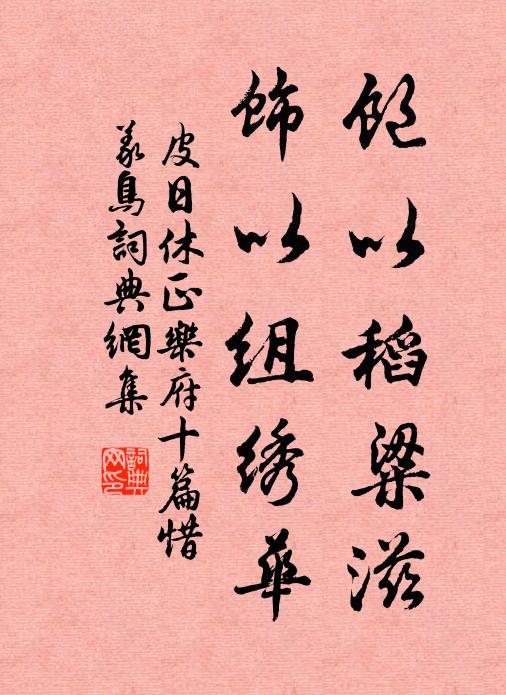 飽以稻粱滋
飾以組绣華
皮日休正樂府十篇惜
義鳥詞典網集
詞典网印